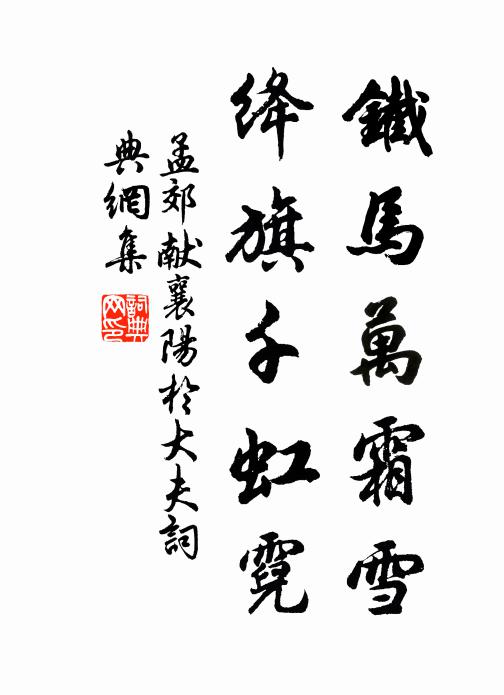 鐵馬萬霜雪
絳旗千虹霓
孟郊献襄陽於大夫詞
典網集
詞典
网印